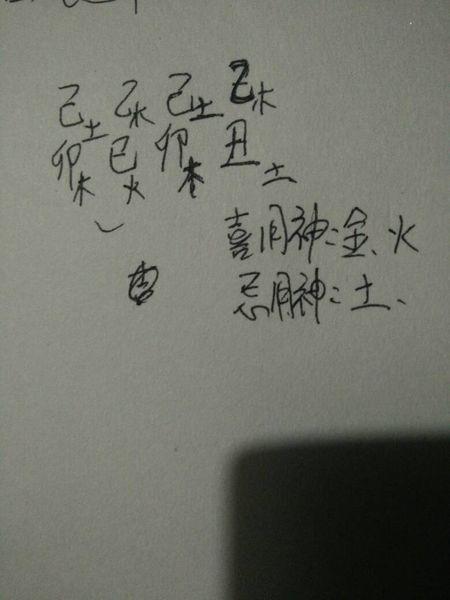 己土 乙木 己土 乙木
卯木 巳火 卯木 丑土
喜用神:金、火
忌用神:土、